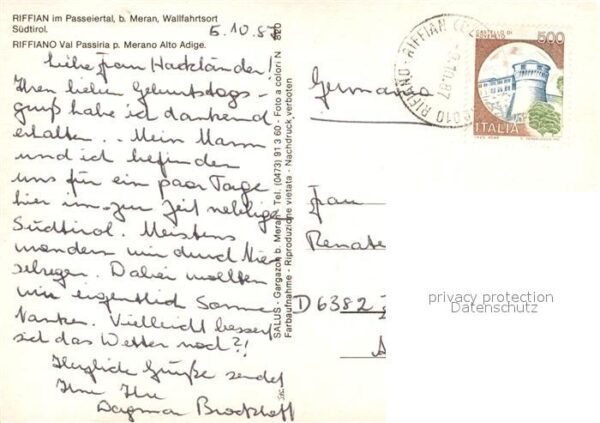 RIFFIAN im Passeiertal, b. Meran, Wallfahrtsort
Südtirol.
RIFFIANO Val Passiria p. Merano Alto Adige.
5.10.87
Liebe Frau Hackländer!
Ihren lieben Geburtstags-
gruß habe ich dankend
erhalten. Mein Mann
und ich befinden
uns für ein paar Tage
hier im zur Zeit nebligen
Südtirol. Meistens
wandern wir durch Nie-
selregen. Dabei wollten
wir eigentlich Sonne
tanken. Vielleicht bessert
sich das Wetter noch?!
Herzliche Grüße sendet
Ihnen Ihre
Dagmar Brockhoff
SALUS - Gargazon b. Meran - Tel. (0473) 91 3 60 - Foto a colori N 820
Farbaufnahme - Riproduzione vietata - Nachdruck verboten
Germania
Frau
Renate
D 6382
RIFFIAN
RIFIANO
CASTELLO DI
ROVERETO
500
ITALIA
privacy protection
Datenschutz